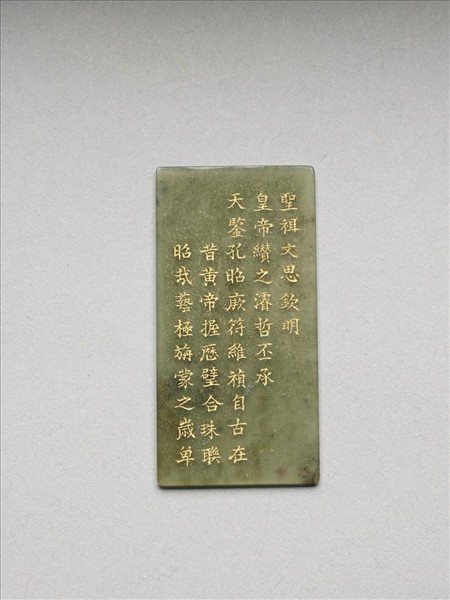 聖祖文思欽明
皇帝纘之濬哲丕承
天鑒孔昭厥符維禎自古在
昔黃帝握厯璧合珠聯
昭哉藝極旃蒙之歲